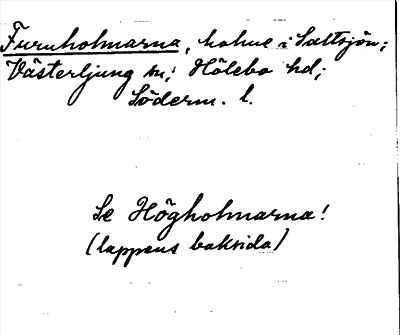 Furuholmarna, holme i Saltsjön;
Västerljung sn; Hölebo hd;
Söderm. l.
Se Högholmarna!
(lappens baksida)